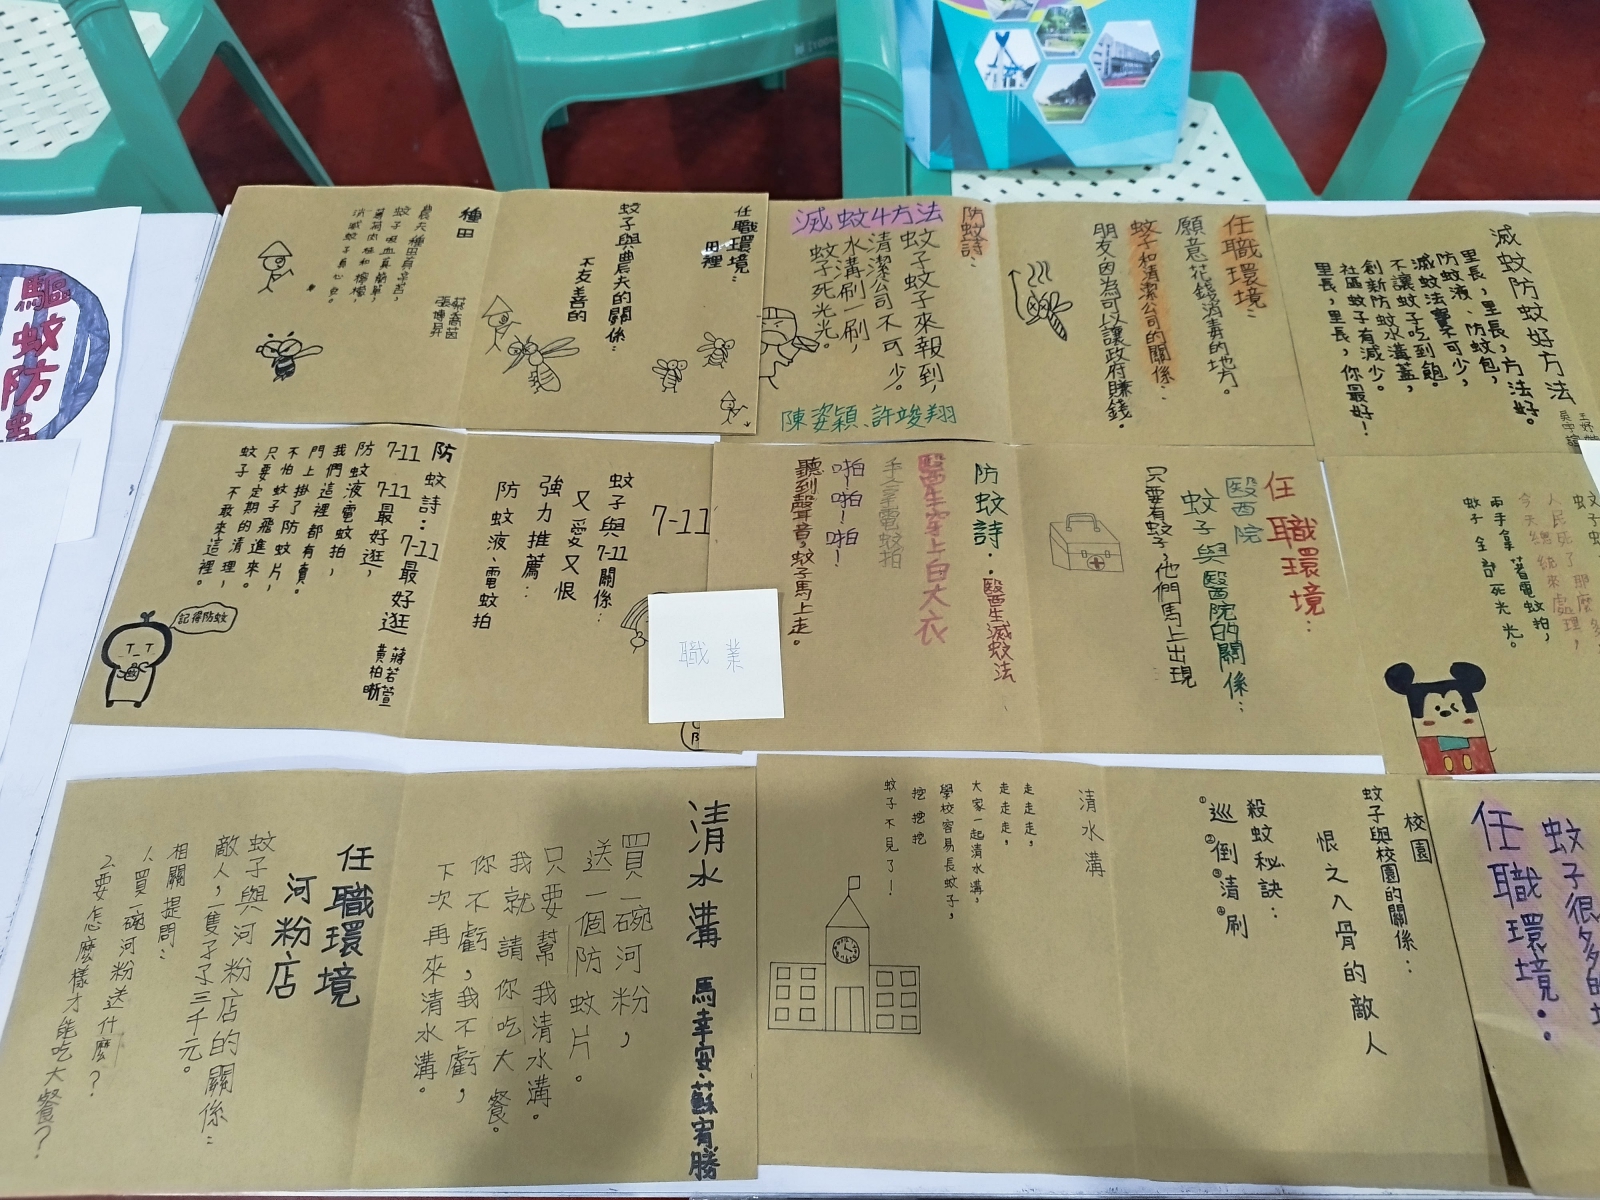 驅蚊防
任職環境：
田裡
蚊子與農夫的關係：
不友善的
種田
農夫種田真辛苦，
蚊子吸血真簡單，
消滅蚊子真心安。
張博昇
任職環境：
願意花錢消毒的地方。
蚊子和清潔公司的關係：
朋友因為可以讓政府賺錢。
防蚊詩：
滅蚊4方法
蚊子蚊子來報到，
清潔公司不可少。
水溝刷一刷，
蚊子死光光。
陳姿穎、許竣翔
滅蚊防蚊好方法
里長，里長，方法好。
防蚊液、防蚊包，
滅蚊法寶不可少，
不讓蚊子吃到飽。
創新防蚊水溝蓋，
社區蚊子有減少。
里長，里長，你最好！
7-11
蚊子與7-11關係：
又愛又恨
強力推薦：
防蚊液、電蚊拍
防蚊詩：7-11最好逛
7-11 7-11最好逛，
防蚊液、電蚊拍，
我們這裡都有賣。
門上掛了防蚊片，
不怕蚊子飛進來。
只要定期的清理，
蚊子不敢來這裡。
蔣若萱
黃柏晰
記得防蚊
職業
任職環境：
醫院
蚊子與醫院的關係：
只要有蚊子，他們馬上出現
防蚊詩：醫生滅蚊法
醫生穿上白大衣
手拿電蚊拍
啪！啪！啪！
聽到聲音，蚊子馬上走。
人民死了那麼多，
今天總統來處理，
兩手拿著電蚊拍，
蚊子全部死光光。
任職環境
河粉店
蚊子與河粉店的關係：
敵人，一隻子子三千元。
相關提問：
1.買一碗河粉送什麼？
2.要怎麼樣才能吃大餐？
清水溝
馬幸安、蘇宥勝
買一碗河粉，
送一個防蚊片。
只要幫我清水溝。
我就請你吃大餐。
你不虧，我不虧，
下次再來清水溝。
校園
蚊子與校園的關係：
恨之入骨的敵人
殺蚊秘訣：
①巡②倒③清④刷
清水溝
走走走，
走走走，
大家一起清水溝，
學校容易長蚊子，
挖挖挖
蚊子不見了！
蚊子很多的地
任職環境：